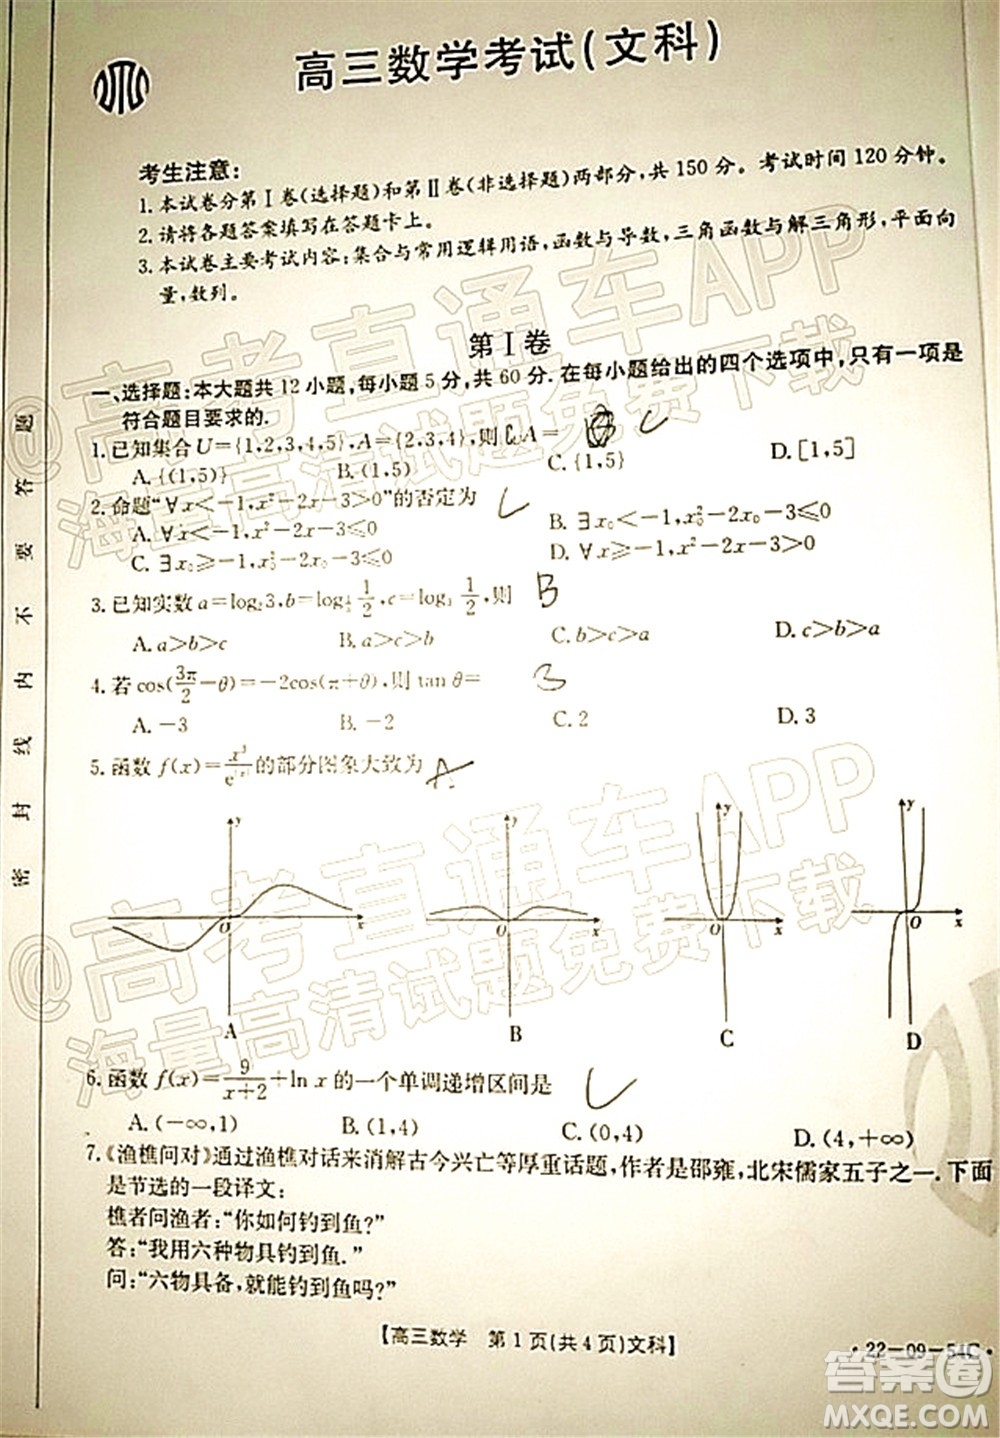 高三数学考试(文科)
考生注意:
1.本试卷分第Ⅰ卷(选择题)和第Ⅱ卷(非选择题)两部分,共150分。考试时间120分钟。
2.请将各题答案填写在答题卡上。
3.本试卷主要考试内容:集合与常用逻辑用语,函数与导数,三角函数与解三角形,平面向
量,数列。
第Ⅰ卷
一、选择题:本大题共12小题,每小题5分,共60分.在每小题给出的四个选项中,只有一项是
符合题目要求的.
1.已知集合U={1,2,3,4,5},A={2,3,4},则∁ᵤA= C
A.{(1,5)} B.(1,5) C.{1,5} D.[1,5]
2.命题“∀x<-1,x²-2x-3>0”的否定为
A.∀x<-1,x²-2x-3≤0 B.∃x₀<-1,x₀²-2x₀-3≤0
C.∃x₀≥-1,x²-2x-3≤0 D.∃x₀≥-1,x²-2x-3>0
3.已知实数a=log₂3,b=log 1/2,c=log₃ 1/2,则 B
A.a>b>c B.a>c>b C.b>c>a D.c>b>a
4.若cos(3π/2-θ)=-2cos(π+θ),则tan θ= B
A.-3 B.-2 C.2 D.3
5.函数f(x)=x³/e^|x|的部分图象大致为 A
y y y y
O x O x O x O x
A B C D
6.函数f(x)=9/(x+2)+ln x的一个单调递增区间是
A.(-∞,1) B.(1,4) C.(0,4) D.(4,+∞)
7.《渔樵问对》通过渔樵对话来消解古今兴亡等厚重话题,作者是邵雍,北宋儒家五子之一.下面
是节选的一段译文:
樵者问渔者:“你如何钓到鱼?”
答:“我用六种物具钓到鱼.”
问:“六物具备,就能钓到鱼吗?”
【高三数学 第1页(共4页)文科】
·22-09-54C·
密封线内不要答题
@高考直通车APP
海量高清试题免费下载
@高考直通车APP
海量高清试题免费下载
答案圈
MXQE.COM